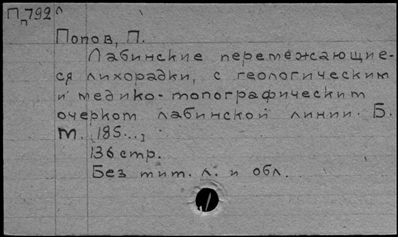 П 792
п
Попов, П.
Лабинские перемежающие-
ся лихорадки, с геологическим
и медико-топографическим
очерком лабинской линии. Б.
м. [185...]
136 стр.
Без тит. л. и обл.